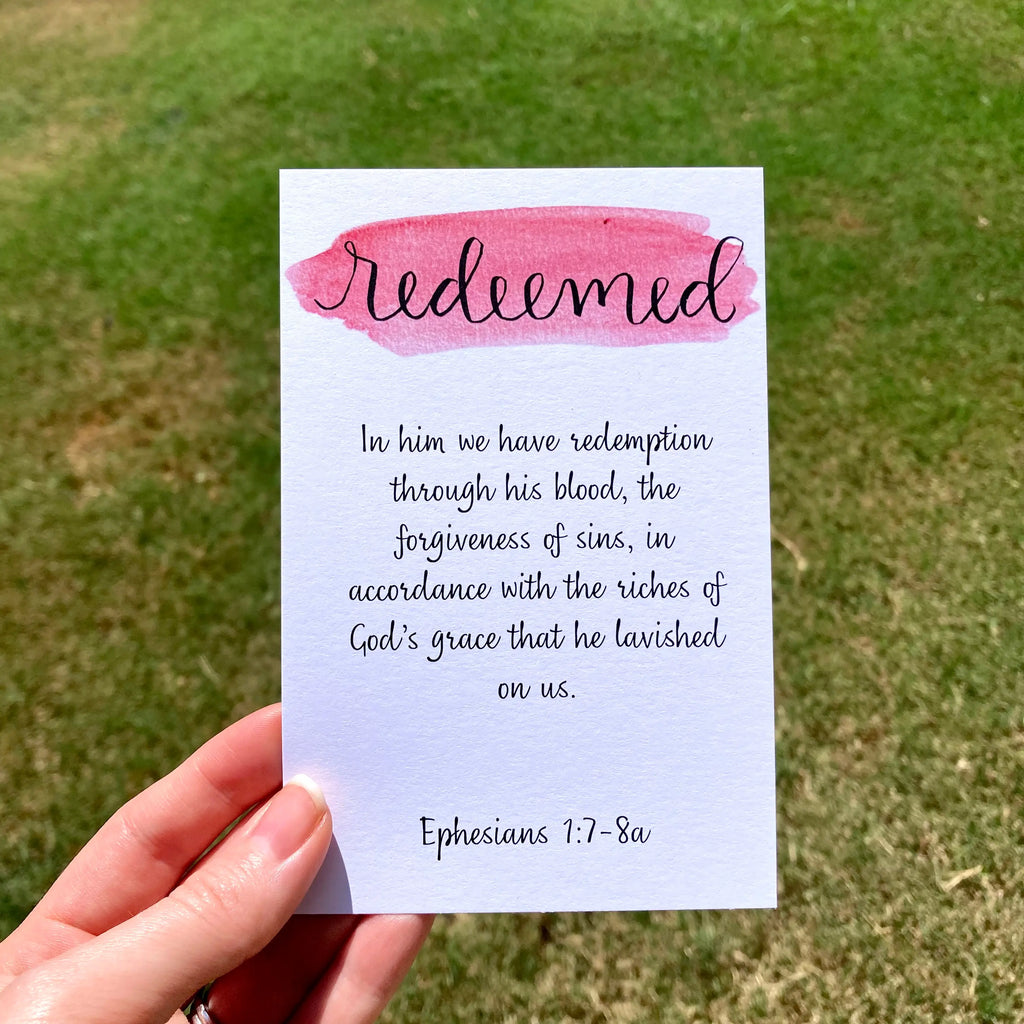 redeemed
In him we have redemption
through his blood, the
forgiveness of sins, in
accordance with the riches of
God's grace that he lavished
on us.
Ephesians 1:7-8a